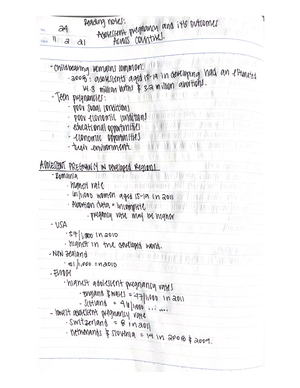 24
Reading notes:
Adolescent pregnancy and it's outcomes
11 2 21
Across countries.
- Childbearing remains common:
- 2008: adolescents aged 15-19 in developing had an estimated
14.3 million births & 3.2 million abortions.
- Teen pregnancies:
- poor social conditions
- poor economic conditions
- educational opportunities
- economic opportunities
- their environment.
ADOLESCENT PREGNANCY IN Developed Regions
- Romania
- highest rate
- 61/1,000 women aged 15-19 in 2011
- Abortion data = incomplete
- pregnancy rate may be higher
- USA
- 57/1,000 in 2010
- highest in the developed world.
- NEW Zealand
- 51/1,000 in 2010
- EUROPE
- highest adolescent pregnancy rates
- England & Wales = 47/1,000 in 2011
- Scotland = 46/1,000
- lowest adolescent pregnancy rate
- Switzerland = 8 in 2011
- Netherlands & Slovenia = 14 in 2008 & 2009.